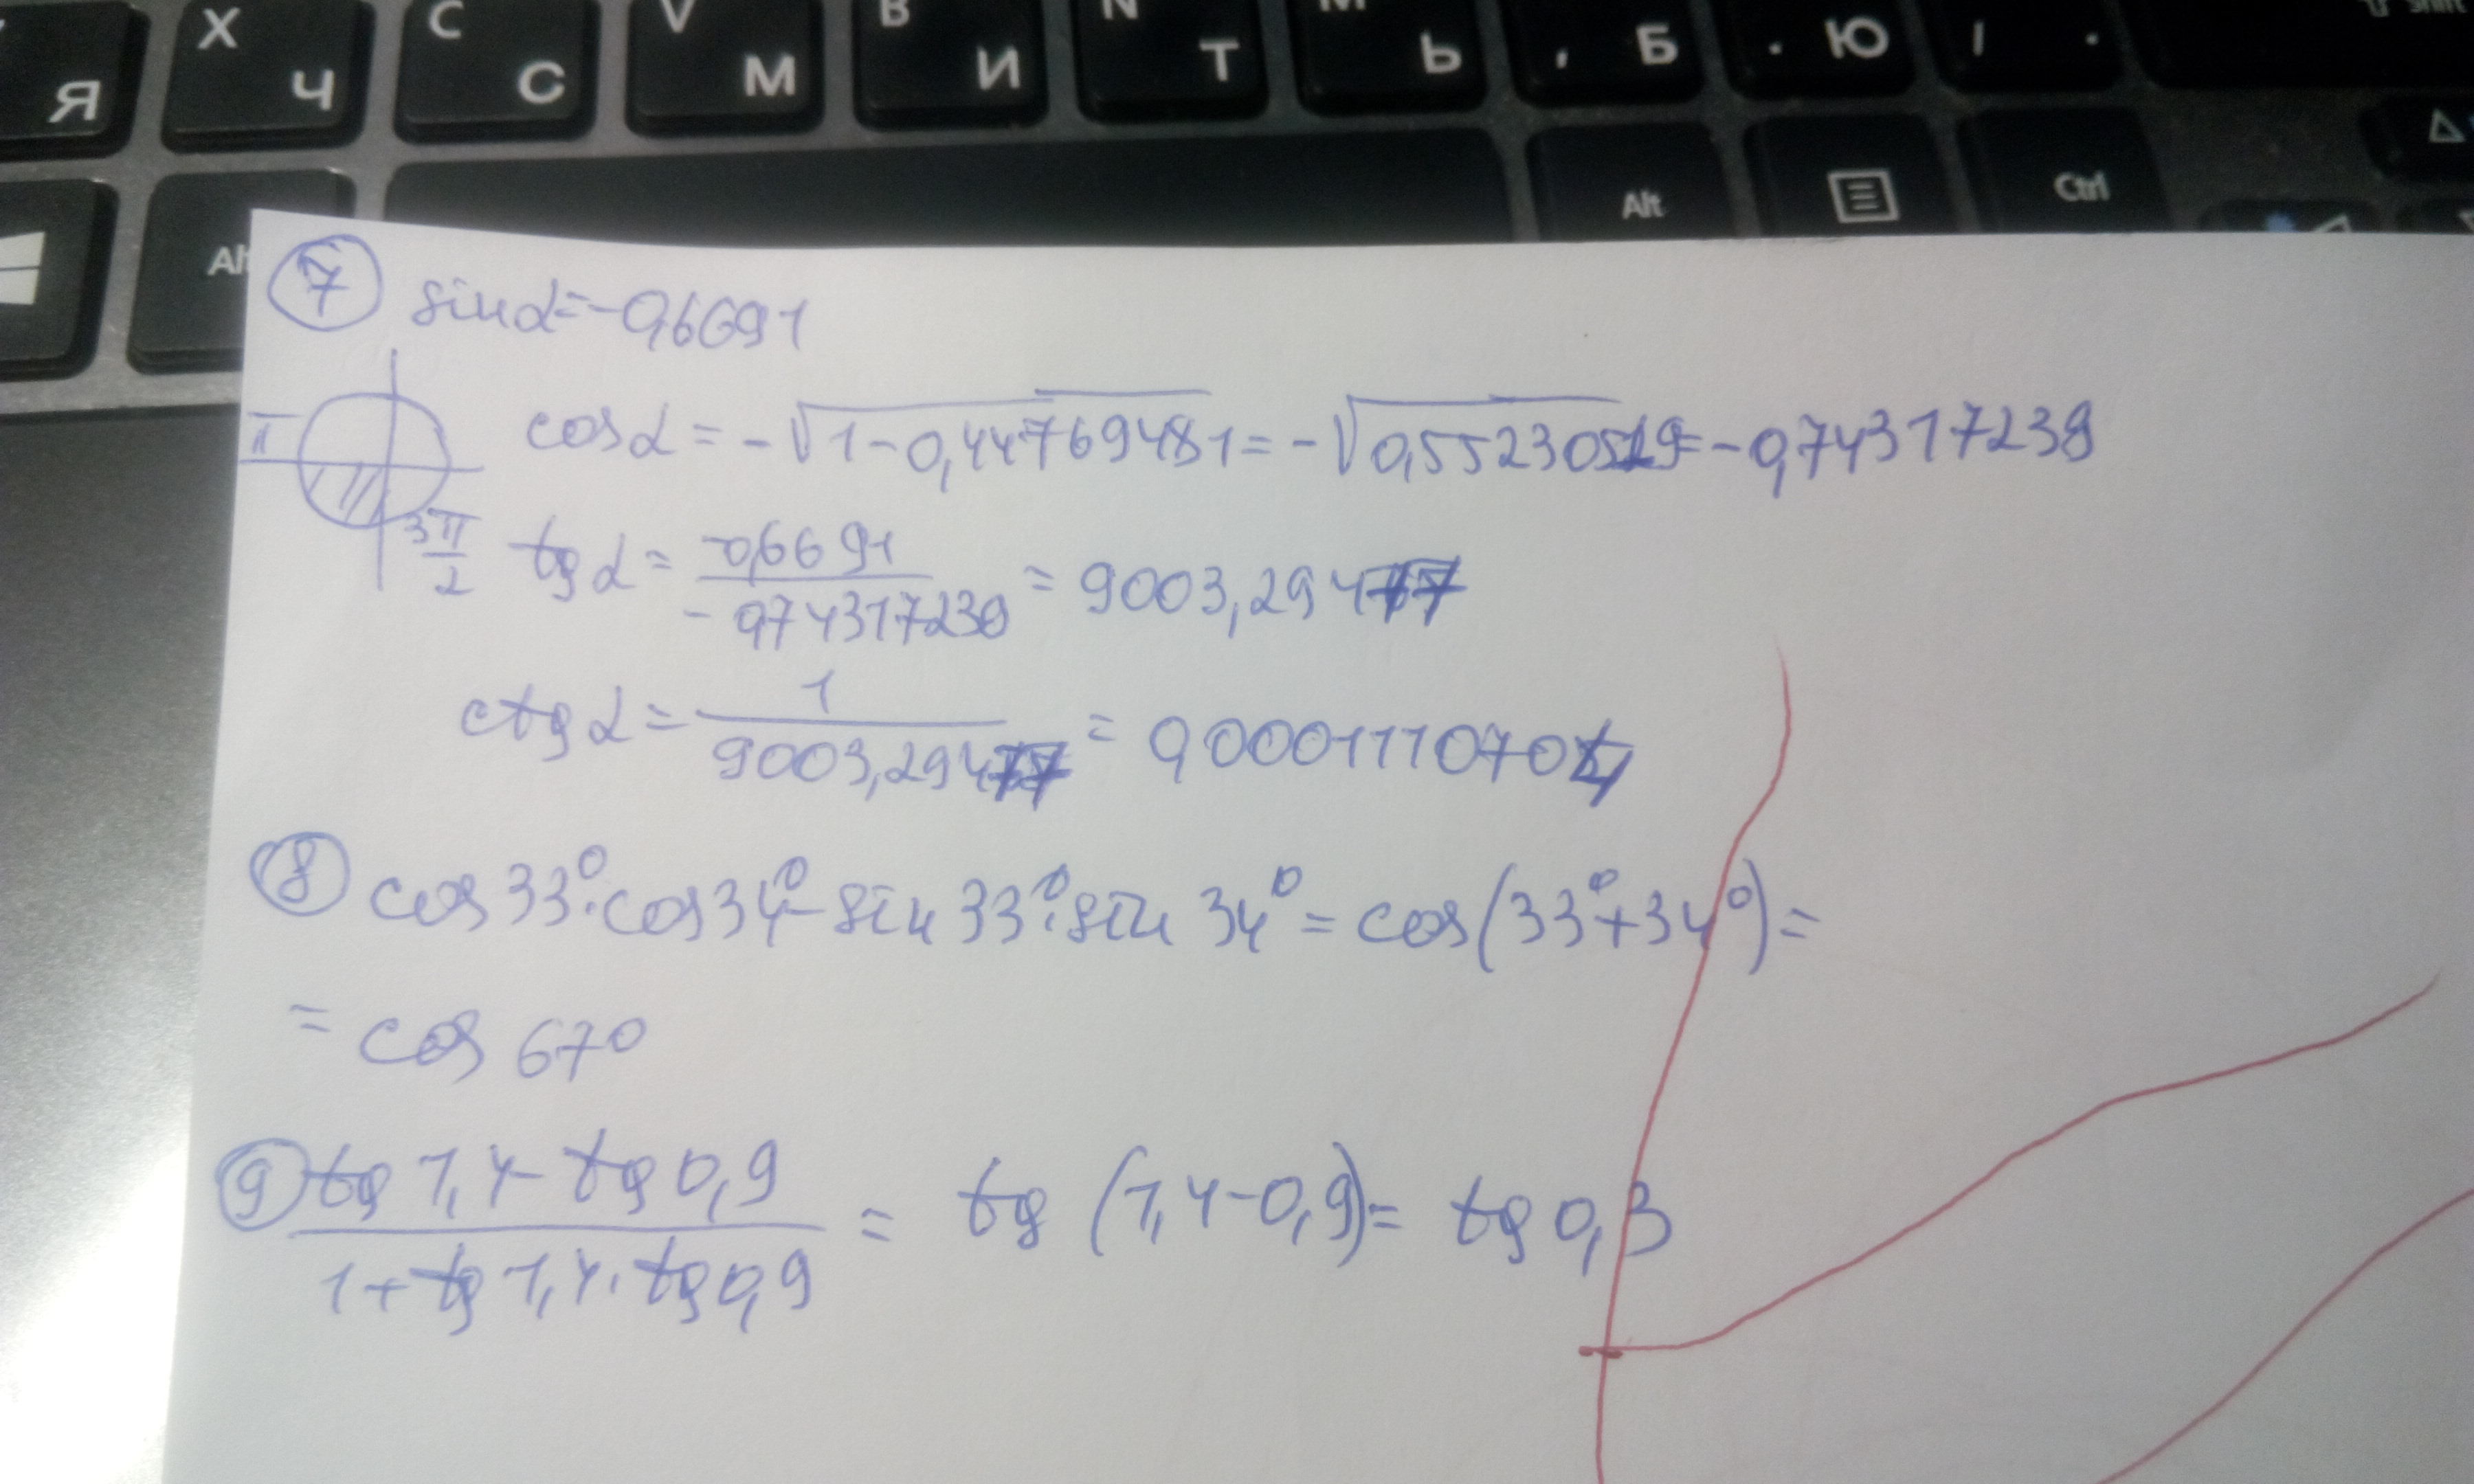 Я X Ч C С V М B И N Т M Ь , Б . Ю / . Shift
Alt Alt Ctrl
7 sinα=-0,6691
π cosα=-√1-0,44769481=-√0,55230519=-0,743172389
3π/2 tgα=-0,6691/-0,743172389=9003,294
ctgα=1/9003,294=0,000111070
8 cos33°·cos34°-sin33°·sin34°=cos(33°+34°)=
=cos67°
9 tg1,4-tg0,9/1+tg1,4·tg0,9=tg(1,4-0,9)=tg0,3